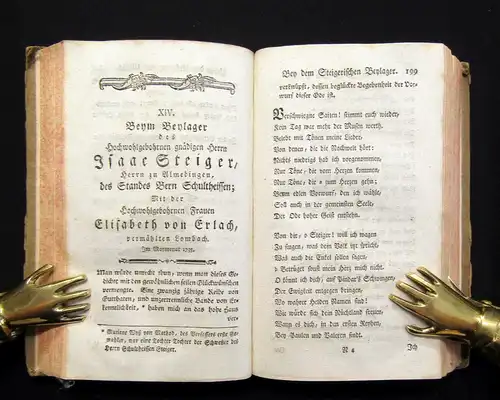 XIV.
Beym Beylager
des
Hochwohlgebohrnen gnädigen Herrn
Isaac Steiger,
Herrn zu Almedingen,
des Standes Bern Schultheissen;
Mit der
Hochwohlgebohrnen Frauen
Elisabeth von Erlach,
vermählten Lombach.
Im
Man würde unrecht thun, wenn man dieses Ge-
dichte mit den gewöhnlichen feilen Glückwünschen
vermengte. Eine zwanzig jährige Reihe von
Gutthaten, und unzertrennliche Bande von Er-
kenntlichkeit, * haben mich an das hohe Haus
ver-
* Mariane Wyß von Mathod, des Verfassers erste Ge-
mahlin, war eine Tochter der Schwester des
Herrn Schultheissen
Bey dem Steigerischen Beylager. 199
verknüpft, dessen beglückte Begebenheit der Vor-
wurf dieser Ode ist.
Verschwiegne Saiten! stimmt euch wieder,
Kein Tag war mehr der Musen werth.
Belebt mit Tönen meine Lieder,
Von denen, die die Nachwelt hört:
Nichts niedrigs hab ich vorgenommen,
Nur Töne, die vom Herzen kommen,
Nur Töne, die zum Herzen gehn;
Beym edlen Vorwurf, den ich wähle,
Soll auch in der gemeinsten Seele,
Der Ode hoher Geist entstehn.
Von dir, o Steiger! will ich wagen
Zu singen, was dein Volk mir spricht,
Was auch die Enkel sollen sagen
Betrügt sonst mein Herz mich nicht.
O könnt ich dich, auf Pindars Schwingen,
Der Ewigkeit entgegen bringen,
Wo wahrer Helden Namen sind!
Wie würde sich dein Nüchtland freuen,
Wann es dich, in das ersten Reyhen,
Bey Paulen und Valern findt.
N 4
Ich